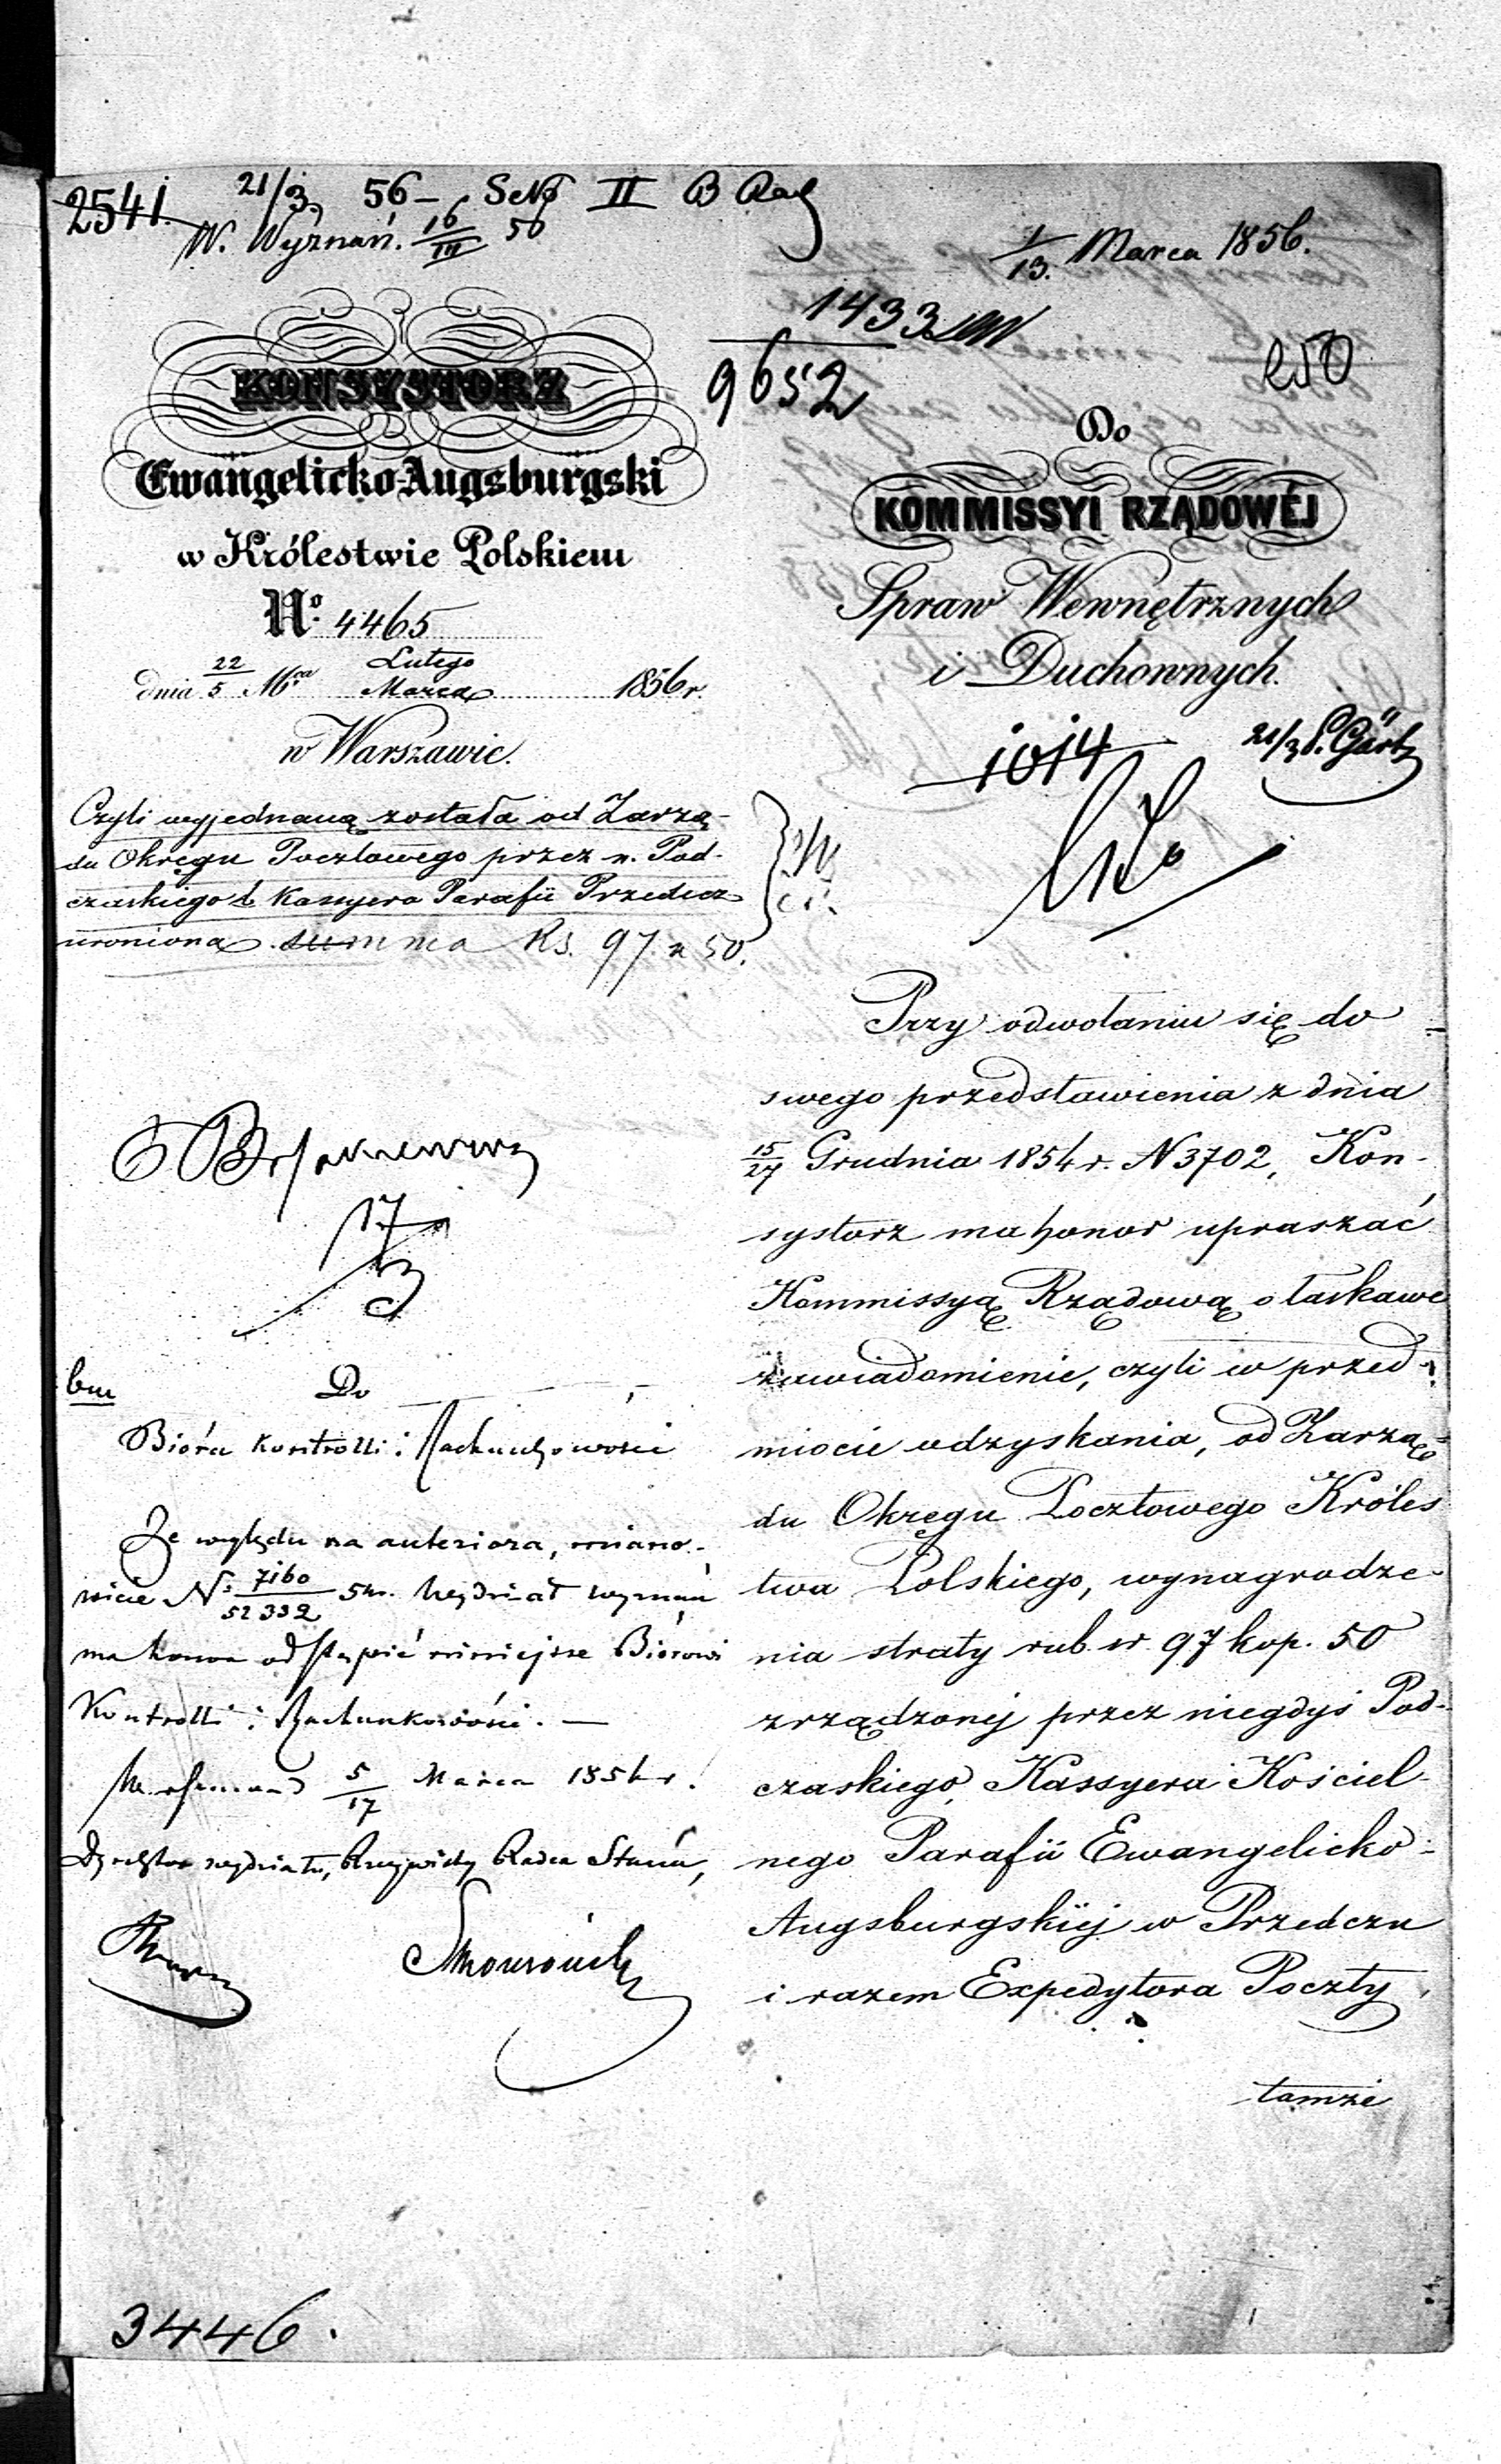 2541. 21/3 56 – II B
W. Wyznań. 16/III 56
1/13. Marca 1856.
1433
9652
250
KONSYSTORZ
Ewangelicko-Augsburgski
w Królestwie Polskiem
Nº 4465
dnia 22/5 Mca Lutego/Marca 1856 r.
w Warszawie.
Czyli wyjednaną została od Zarzą-
du Okręgu Pocztowego przez n. Pod-
czaskiego b. Kassyera Parafii Przedecz
uroniona summa Rs. 97 k 50.
Do
KOMMISSYI RZĄDOWÉJ
Spraw Wewnętrznych
i Duchownych.
1014
21/3
Przy odwołaniu się do
swego przedstawienia z dnia
15/27 Grudnia 1854 r. N 3702, Kon-
systorz ma honor upraszać
Kommissyą Rządową o łaskawe
zawiadomienie, czyli w przed-
miocie odzyskania, od Zarzą-
du Okręgu Pocztowego Króles
twa Polskiego, wynagrodze-
nia straty rub. sr. 97 kop. 50
zrządzonej przez niegdyś Pod-
czaskiego, Kassyera Kościel-
nego Parafii Ewangelicko-
Augsburgskiéj w Przedczu
i razem Expedytora Poczty
tamże
17/3
bm Do
Bióra Kontrolli i Rachunkowości
Ze względu na anteriora, miano-
wicie N: 7160/52332 Wydział wyznań
ma honor odstąpić niniejsze Biórowi
Kontrolli i Rachunkowości. —
5/17 Marca 185 r.
Dyrektor wydziału, Rzeczywisty Radca Stanu,
3446.